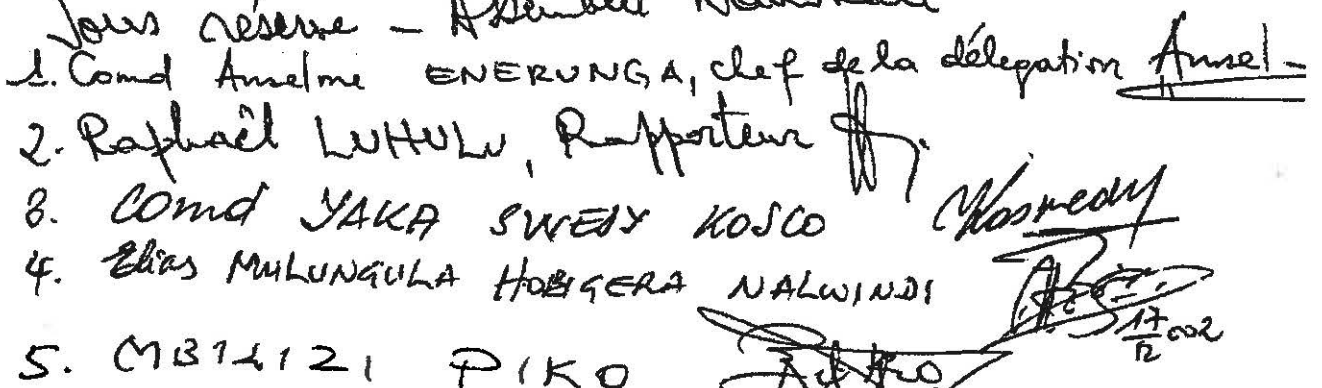 Sous réserve – Assemblée Nationale
1. Comd Anselme ENERUNGA, chef de la délégation Ansel-
2. Raphaël LUHULU, Rapporteur
3. Comd YAKA SWEDY KOSCO Koswedy
4. Elias MULUNGULA HOBIGERA NALWINDI
17/12 002
5. PIKO